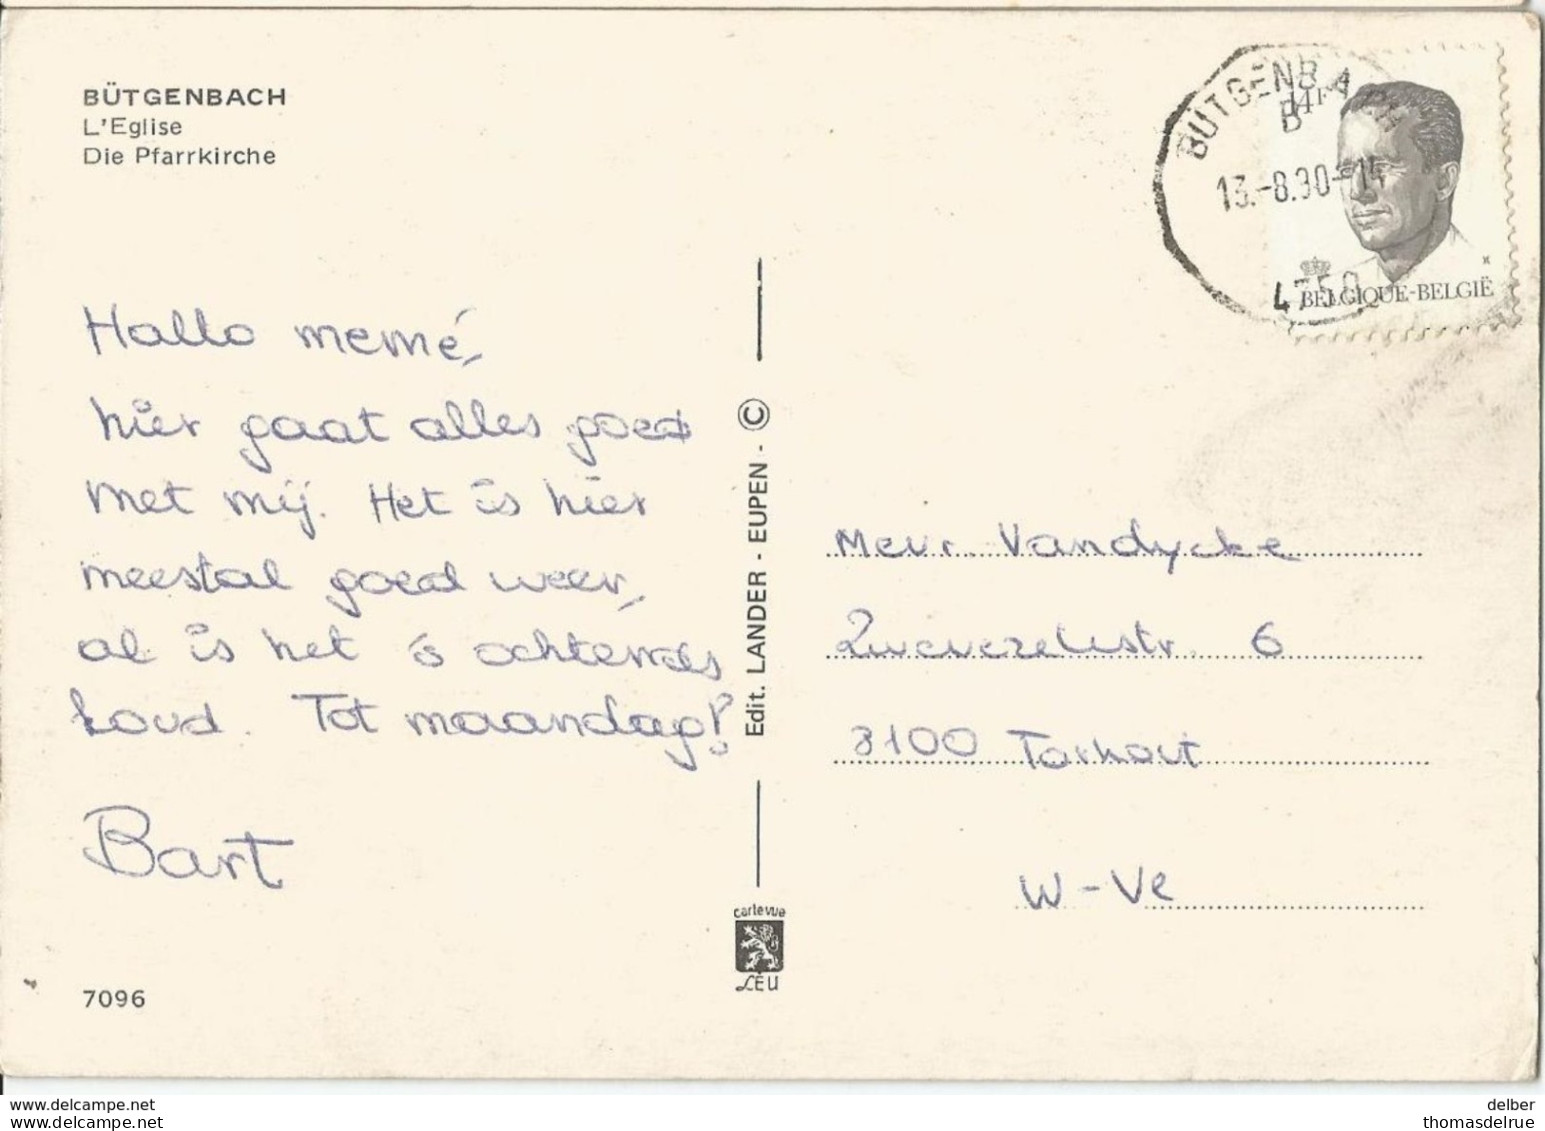 BÜTGENBACH
L'Eglise
Die Pfarrkirche
Hallo memé,
hier gaat alles goed
met mij. Het is hier
meestal goed weer,
al is het 's ochtends
koud. Tot maandag!
Bart
7096
Edit. LANDER - EUPEN - ©
cartevue
LEU
BÜTGENBACH
B
13.-8.90-14
4750
14F
BELGIQUE-BELGIË
Mevr. Vandycke
Zwevezelestr. 6
8100 Torhout
W-Vl
www.delcampe.net
www.delcampe.net
delber
thomasdelrue